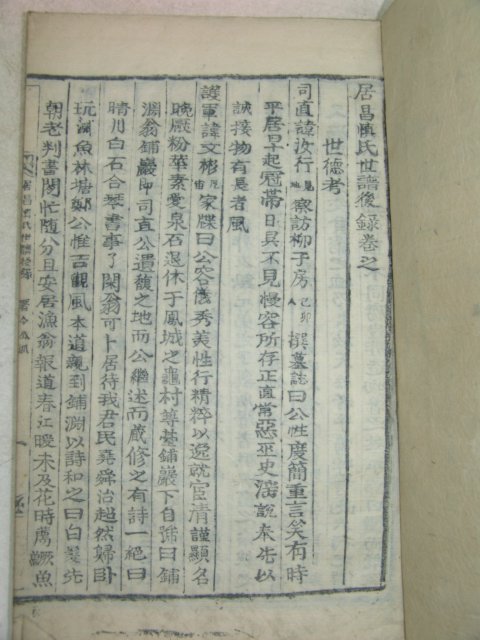 居昌愼氏世譜後錄卷之
世德考
司直諱汝行 見地 察訪柳子房 己卯人 撰墓誌曰公性度簡重言笑有時
平居早起冠帶日具不見慢容所存正直常惡巫史淫說奉先以
誠接物有長者風
護軍諱文彬 見宙 家牒曰公容儀秀美性行精粹以逸就宦淸謹顯名
晩厭粉華素愛泉石退休于鳳城之龜村蓴基鋪巖下自號曰鋪
淵翁鋪巖卽司直公遺馥之地而公繼述而藏修之有詩一絶曰
晴川白石合琴書事了閑翁可卜居待我君民堯舜治超然歸臥
玩淵魚林塘鄭公惟吉觀風本道親到鋪淵以詩和之曰白髮先
朝老判書閑忙隨分且安居漁翁報道春江暖未及花時薦鱖魚